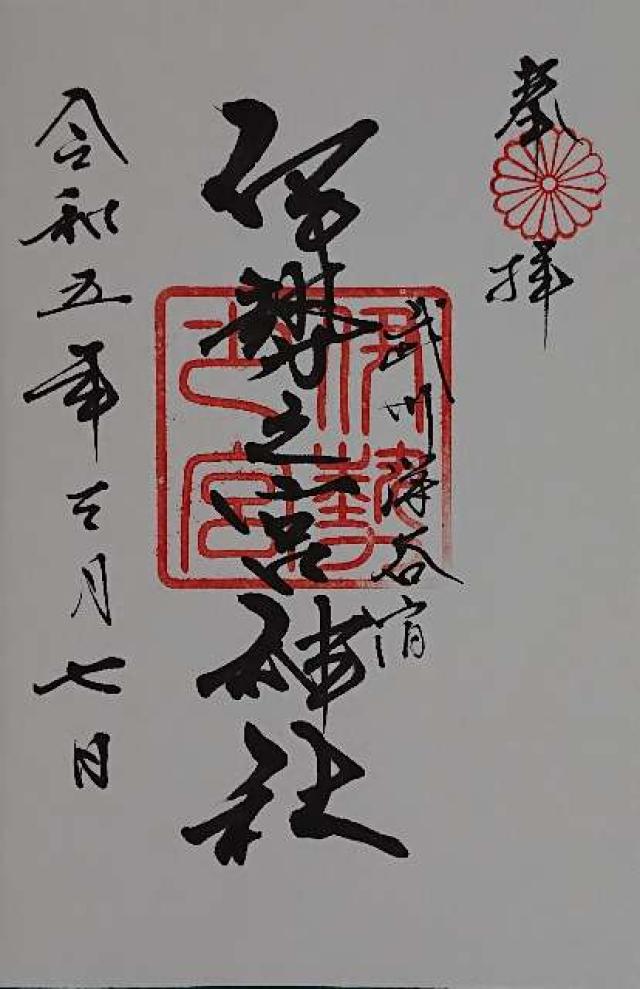 奉拝
武州深谷宿
伊勢之宮神社
伊勢
之宮
令和五年三月七日